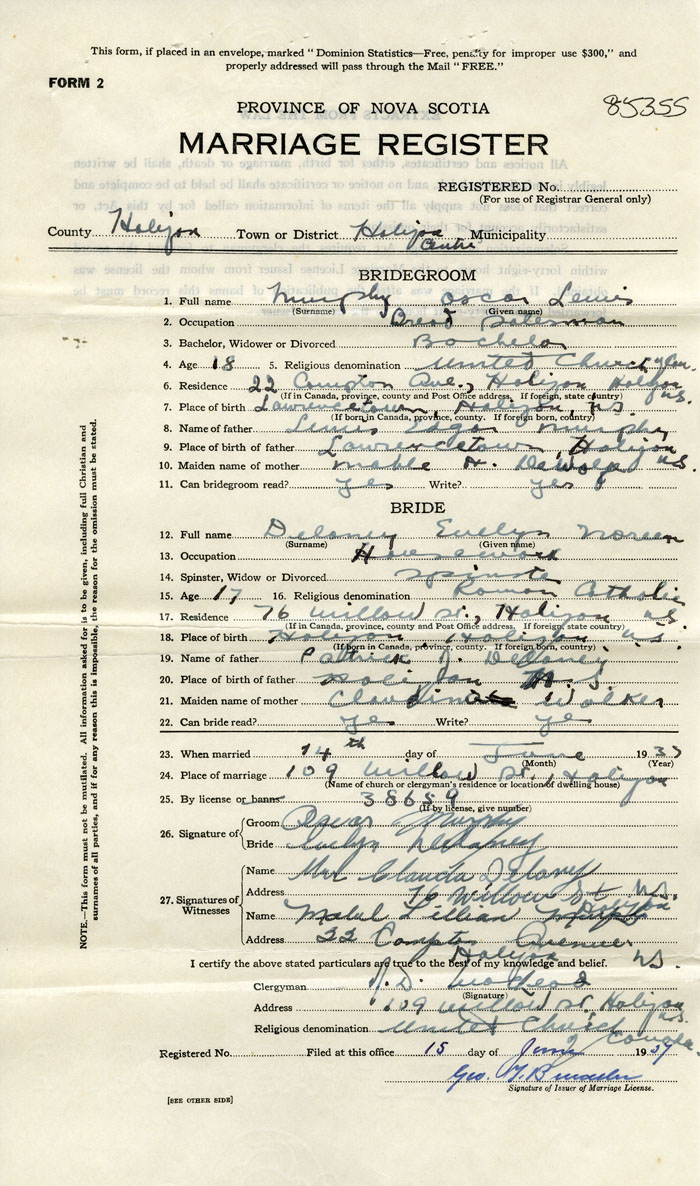 This form, if placed in an envelope, marked "Dominion Statistics—Free, penalty for improper use $300," and
properly addressed will pass through the Mail "FREE."
FORM 2
85355
PROVINCE OF NOVA SCOTIA
MARRIAGE REGISTER
REGISTERED No.
(For use of Registrar General only)
County Halifax Town or District Halifax Centre Municipality
BRIDEGROOM
1. Full name Murphy Oscar Lewis
(Surname) (Given name)
2. Occupation Bread Salesman
3. Bachelor, Widower or Divorced Bachelor
4. Age 18 5. Religious denomination United Church
6. Residence 22 Compton Ave., Halifax Halifax N.S.
(If in Canada, province, county and Post Office address. If foreign, state country)
7. Place of birth Lawrencetown, Halifax N.S.
(If born in Canada, province, county. If foreign born, country)
8. Name of father Lewis Edgar Murphy
9. Place of birth of father Lawrencetown, Halifax
10. Maiden name of mother Mable A. DeWolfe N.S.
11. Can bridegroom read? yes Write? yes
BRIDE
12. Full name Delaney Evelyn Noreen
(Surname) (Given name)
13. Occupation Housework
14. Spinster, Widow or Divorced Spinster
15. Age 17 16. Religious denomination Roman Catholic
17. Residence 76 Willow St., Halifax N.S.
(If in Canada, province, county and Post Office address. If foreign, state country)
18. Place of birth Halifax Halifax N.S.
(If born in Canada, province, county. If foreign born, country)
19. Name of father Patrick J. Delaney
20. Place of birth of father Halifax N.S.
21. Maiden name of mother Claudina Walker
22. Can bride read? yes Write? yes
23. When married 14th day of June 1937
(Month) (Year)
24. Place of marriage 109 Willow St., Halifax
(Name of church or clergyman's residence or location of dwelling house)
25. By license or banns 38659
(If by license, give number)
26. Signature of Groom Oscar Murphy
Bride Evelyn Delaney
27. Signatures of Witnesses
Name Mrs Claudia Delaney
Address 76 Willow St N.S.
Name Mabel Lillian Murphy
Address 22 Compton Avenue Halifax N.S.
I certify the above stated particulars are true to the best of my knowledge and belief.
Clergyman
(Signature)
Address 109 Willow St. Halifax N.S.
Religious denomination United Church Canada
Registered No. Filed at this office 15 day of June 1937
Geo.
Signature of Issuer of Marriage License.
[SEE OTHER SIDE]
NOTE.—This form must not be mutilated. All information asked for is to be given, including full Christian and
surnames of all parties, and if for any reason this is impossible, the reason for the omission must be stated.